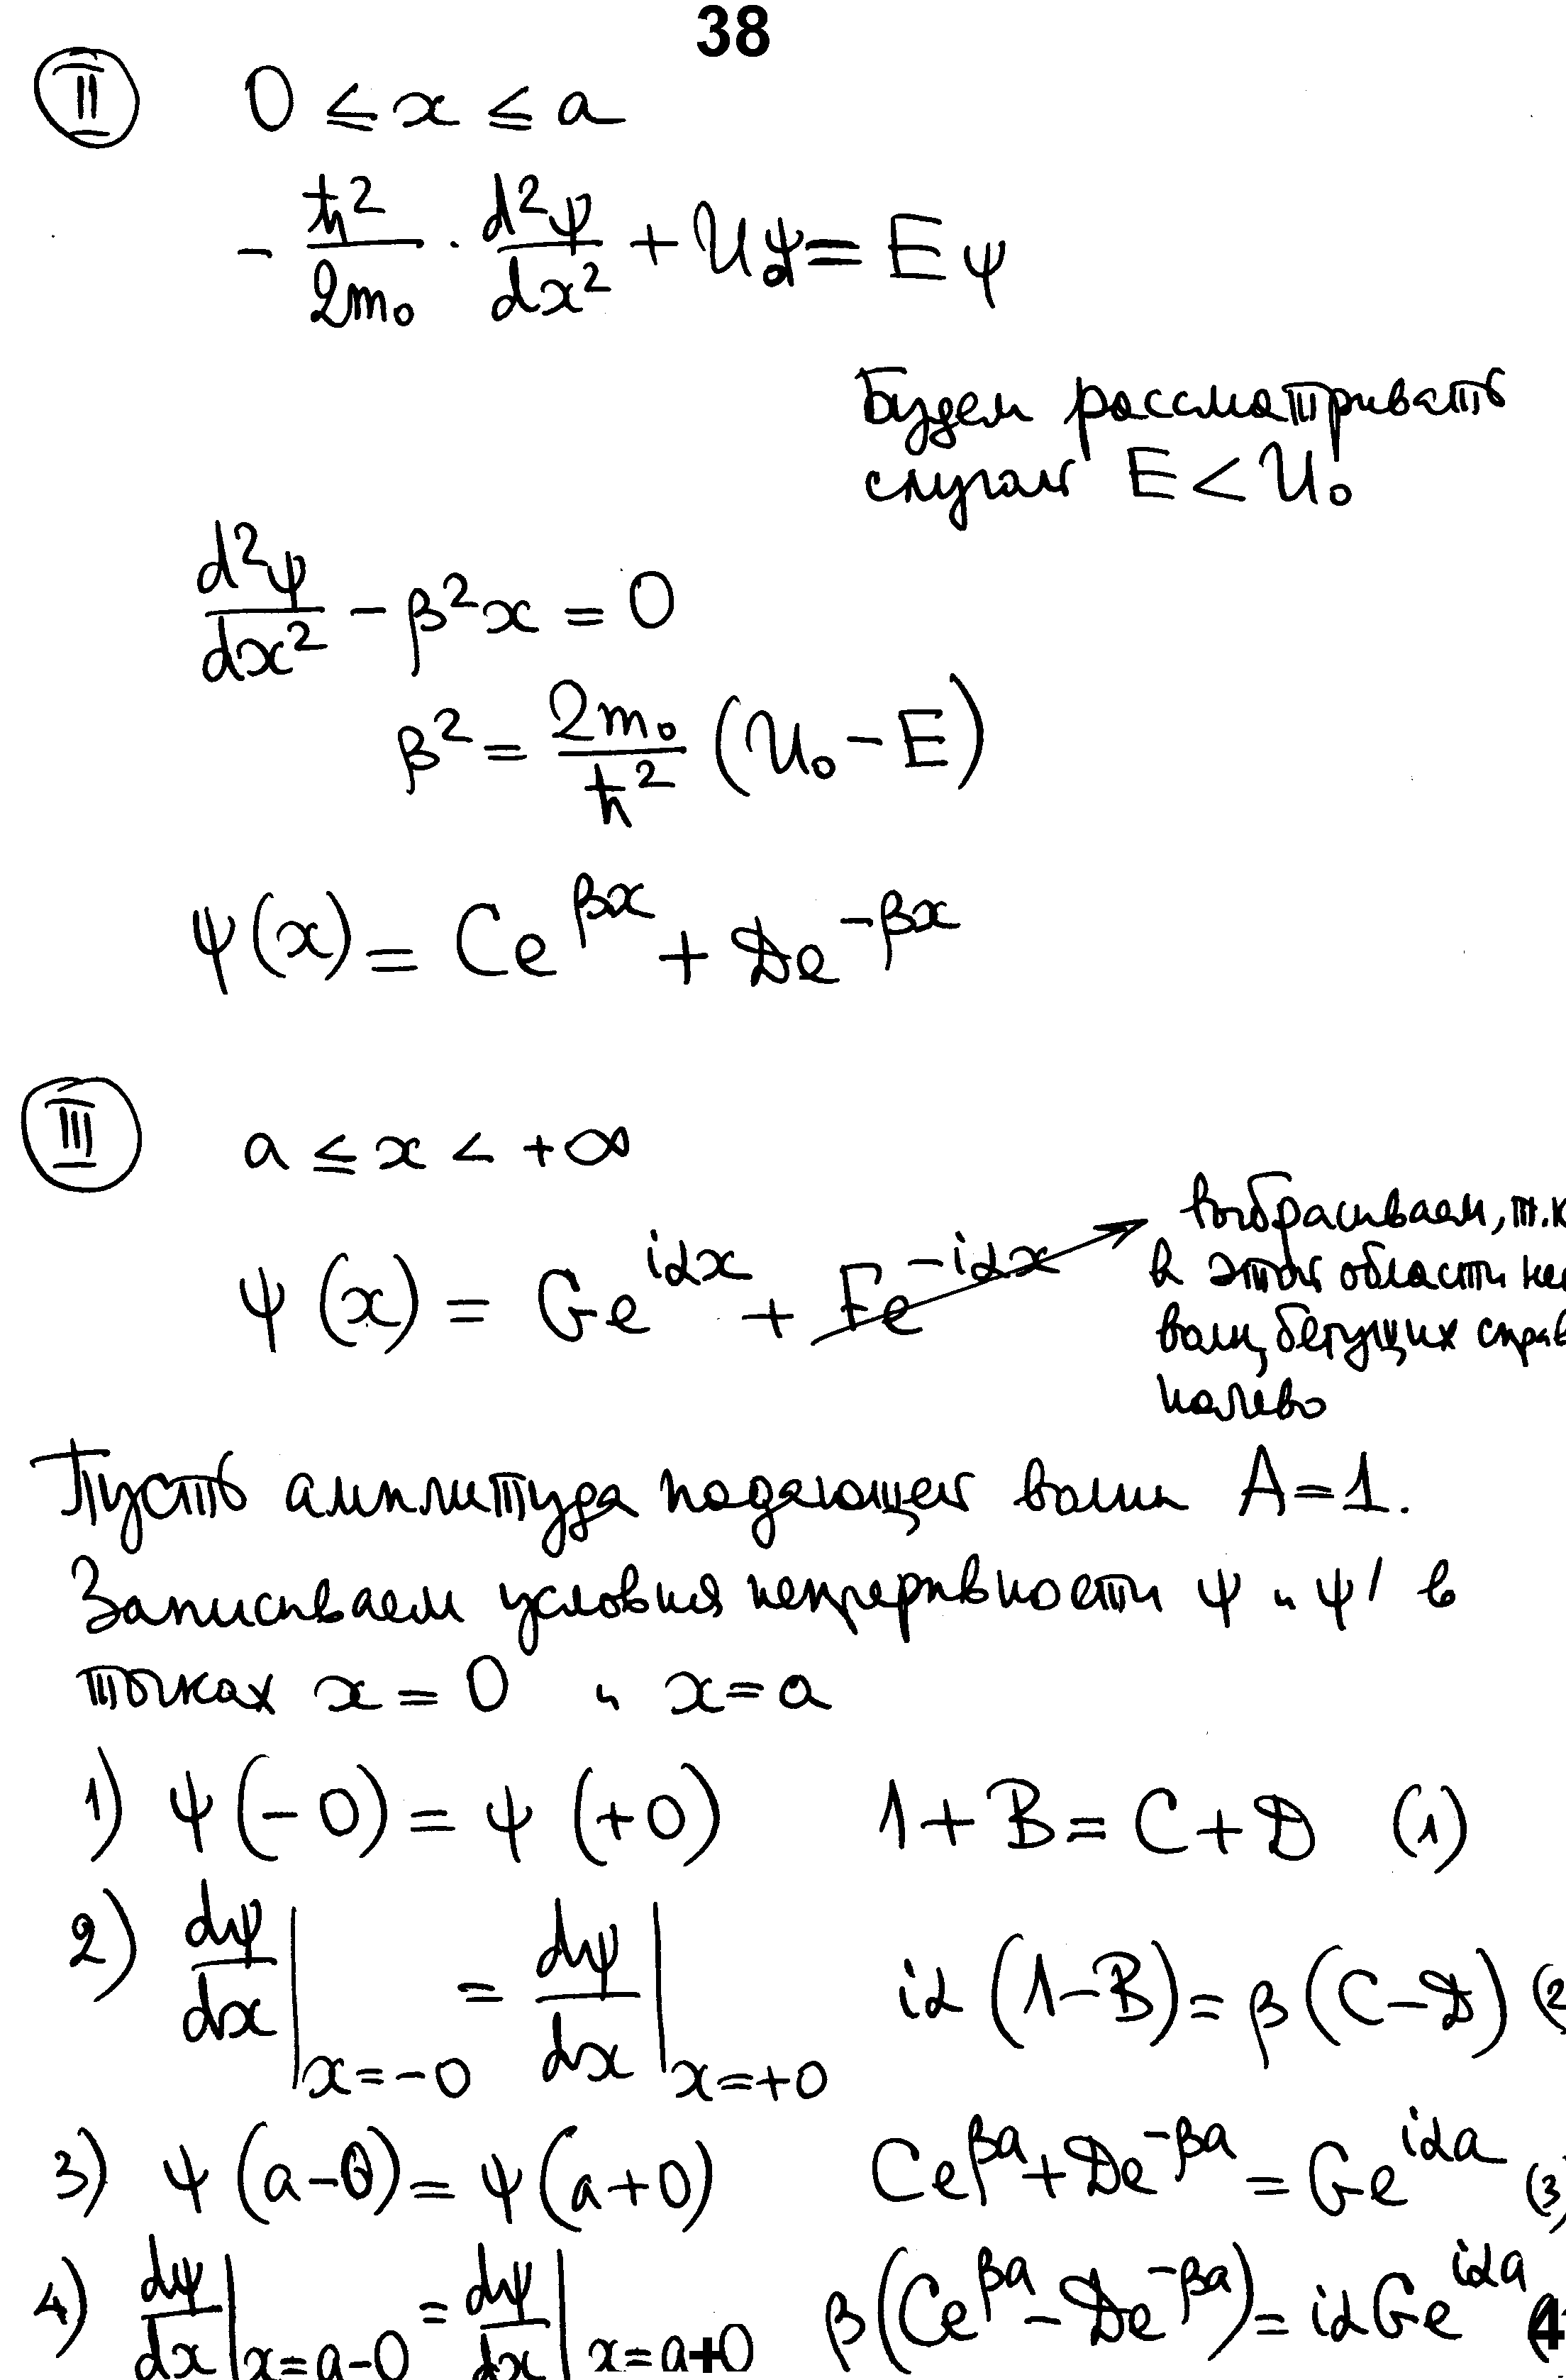 38
II 0 ≤ x ≤ a
- ħ²/2m₀ · d²ψ/dx² + U₀ψ = Eψ
Будем рассматривать
случай E < U₀
d²ψ/dx² - β²x = 0
β² = 2m₀/ħ² (U₀ - E)
ψ(x) = Ce^βx + De^-βx
III a ≤ x < +∞
ψ(x) = Ge^iαx + Fe^-iαx
выбрасываем, т.к
в этой области нет
волн, бегущих справ
налево
Пусть амплитуда падающей волны A = 1.
Записываем условия непрерывности ψ и ψ' в
точках x = 0 и x = a
1) ψ(-0) = ψ(+0) 1 + B = C + D (1)
2) dψ/dx|x=-0 = dψ/dx|x=+0 iα(1-B) = β(C-D) (2
3) ψ(a-0) = ψ(a+0) Ce^βa + De^-βa = Ge^iαa (3)
4) dψ/dx|x=a-0 = dψ/dx|x=a+0 β(Ce^βa - De^-βa) = iαGe^iαa (4